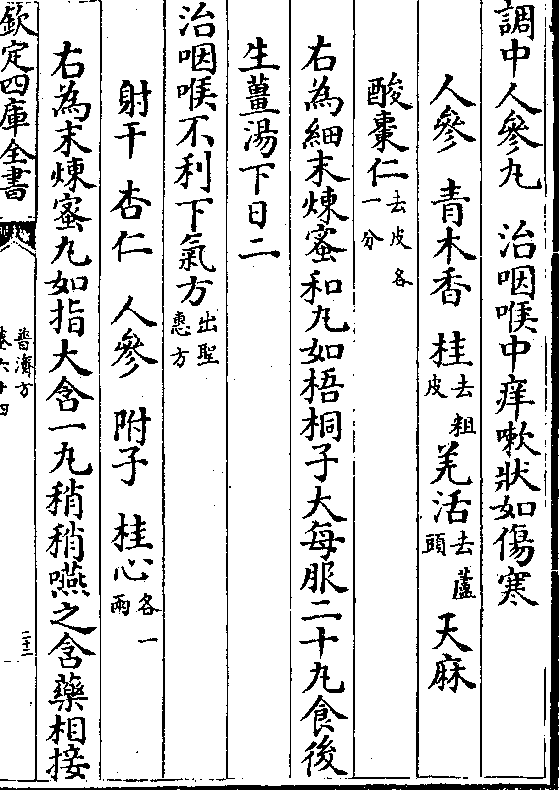 調中人參丸　治咽喉中痒嗽狀如傷寒
人參　青木香　桂去粗皮　羌活去蘆頭　天麻
酸棗仁去皮各一分
右為細末煉蜜和丸如梧桐子大每服二十丸食後
生薑湯下日二
治咽喉不利下氣方出聖惠方
射干　杏仁　人參　附子　桂心各一兩
右為末煉蜜丸如指大含一丸稍稍嚥之含藥相接
欽定四庫全書　普濟方卷六十四